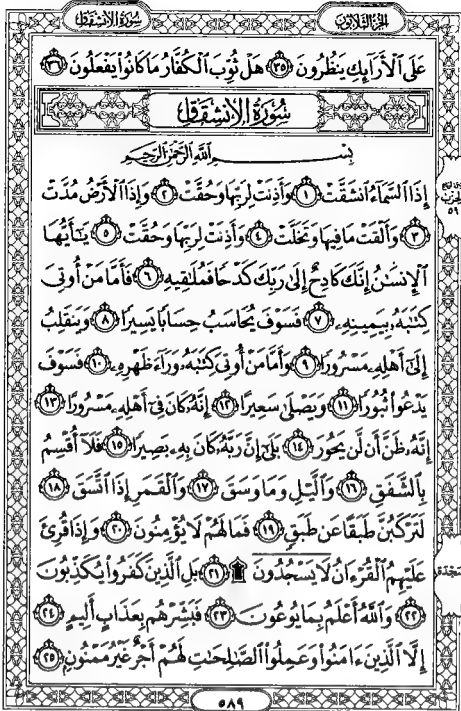 سُورَةُ الانشِقَاق
الجُزْءُ الثَّلَاثُونَ
عَلَى ٱلْأَرَآئِكِ يَنظُرُونَ ٣٥ هَلْ ثُوِّبَ ٱلْكُفَّارُ مَا كَانُوا۟ يَفْعَلُونَ ٣٦
سُورَةُ الانشِقَاق
بِسْمِ ٱللَّهِ ٱلرَّحْمَٰنِ ٱلرَّحِيمِ
إِذَا ٱلسَّمَآءُ ٱنشَقَّتْ ١ وَأَذِنَتْ لِرَبِّهَا وَحُقَّتْ ٢ وَإِذَا ٱلْأَرْضُ مُدَّتْ
٣ وَأَلْقَتْ مَا فِيهَا وَتَخَلَّتْ ٤ وَأَذِنَتْ لِرَبِّهَا وَحُقَّتْ ٥ يَٰٓأَيُّهَا
ٱلْإِنسَٰنُ إِنَّكَ كَادِحٌ إِلَىٰ رَبِّكَ كَدْحًا فَمُلَٰقِيهِ ٦ فَأَمَّا مَنْ أُوتِىَ
كِتَٰبَهُۥ بِيَمِينِهِۦ ٧ فَسَوْفَ يُحَاسَبُ حِسَابًا يَسِيرًا ٨ وَيَنقَلِبُ
إِلَىٰٓ أَهْلِهِۦ مَسْرُورًا ٩ وَأَمَّا مَنْ أُوتِىَ كِتَٰبَهُۥ وَرَآءَ ظَهْرِهِۦ ١٠ فَسَوْفَ
يَدْعُوا۟ ثُبُورًا ١١ وَيَصْلَىٰ سَعِيرًا ١٢ إِنَّهُۥ كَانَ فِىٓ أَهْلِهِۦ مَسْرُورًا ١٣
إِنَّهُۥ ظَنَّ أَن لَّن يَحُورَ ١٤ بَلَىٰٓ إِنَّ رَبَّهُۥ كَانَ بِهِۦ بَصِيرًا ١٥ فَلَآ أُقْسِمُ
بِٱلشَّفَقِ ١٦ وَٱلَّيْلِ وَمَا وَسَقَ ١٧ وَٱلْقَمَرِ إِذَا ٱتَّسَقَ ١٨
لَتَرْكَبُنَّ طَبَقًا عَن طَبَقٍ ١٩ فَمَا لَهُمْ لَا يُؤْمِنُونَ ٢٠ وَإِذَا قُرِئَ
عَلَيْهِمُ ٱلْقُرْءَانُ لَا يَسْجُدُونَ ۩ ٢١ بَلِ ٱلَّذِينَ كَفَرُوا۟ يُكَذِّبُونَ
٢٢ وَٱللَّهُ أَعْلَمُ بِمَا يُوعُونَ ٢٣ فَبَشِّرْهُم بِعَذَابٍ أَلِيمٍ ٢٤
إِلَّا ٱلَّذِينَ ءَامَنُوا۟ وَعَمِلُوا۟ ٱلصَّٰلِحَٰتِ لَهُمْ أَجْرٌ غَيْرُ مَمْنُونٍۭ ٢٥
٥٨٩